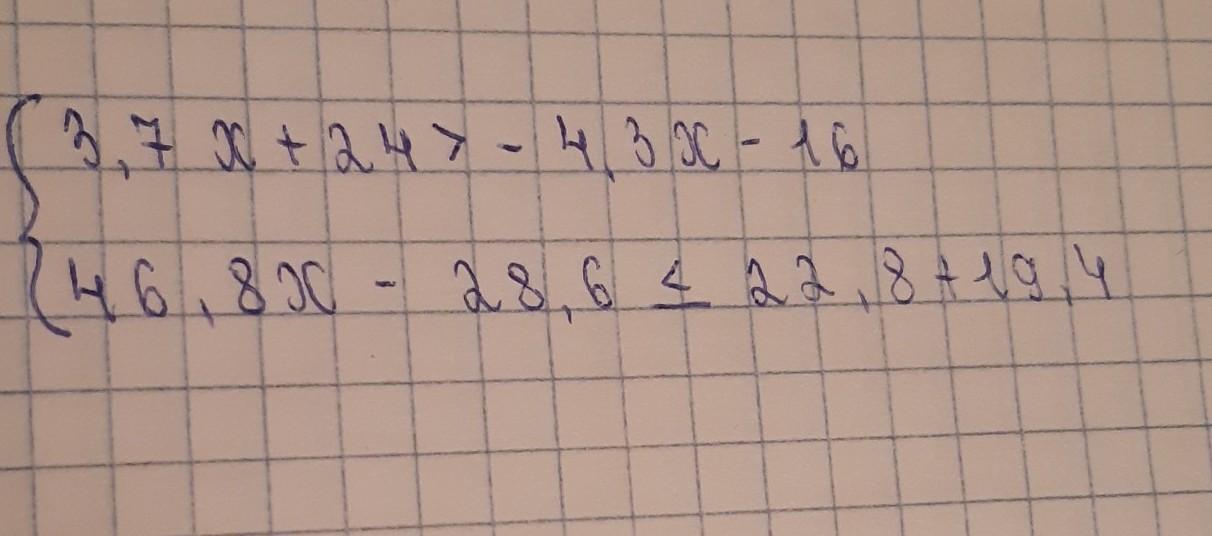 3,7x+24>-4,3x-16
46,8x-28,6≤22,8+19,4